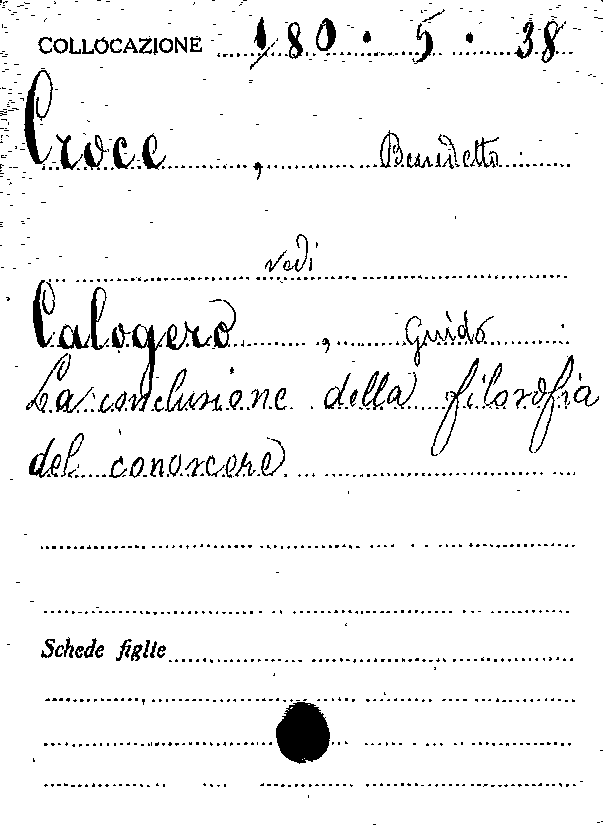 COLLOCAZIONE 180 . 5 . 38
Croce , Benedetto
vedi
Calogero , Guido
La conclusione della filosofia
del conoscere
Schede figlie